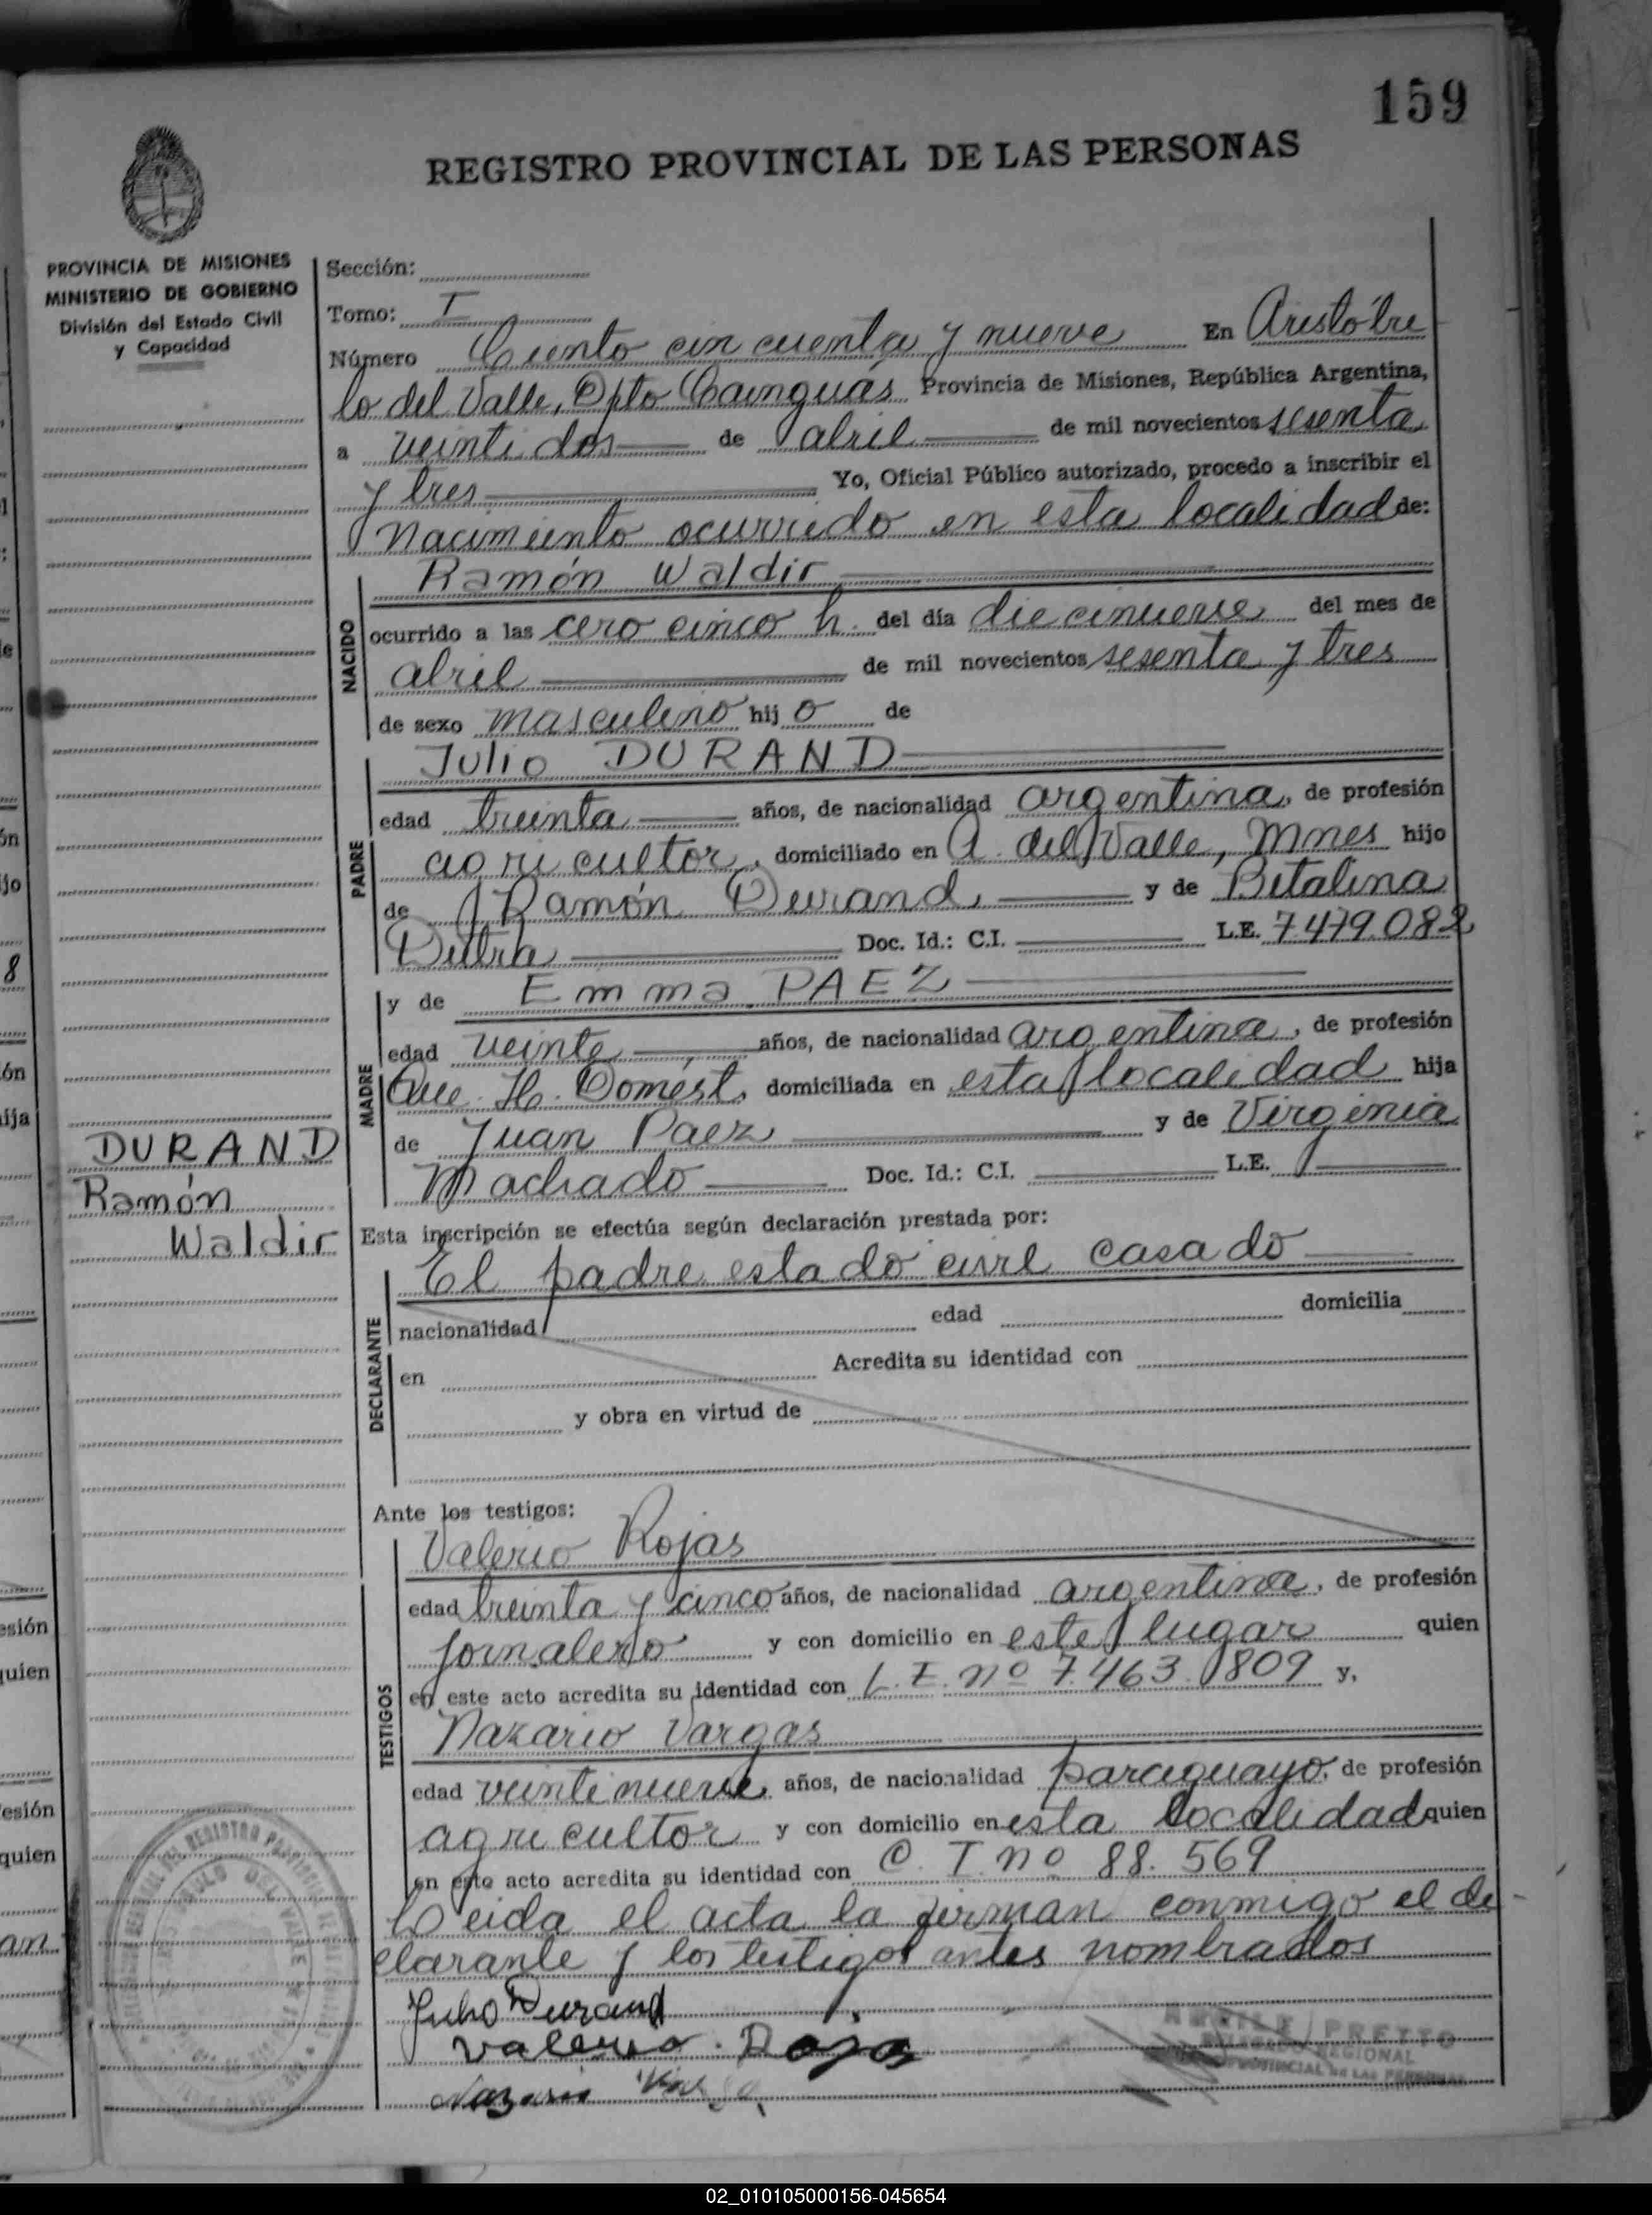 159
REGISTRO PROVINCIAL DE LAS PERSONAS
PROVINCIA DE MISIONES
MINISTERIO DE GOBIERNO
División del Estado Civil
y Capacidad
Sección:
Tomo: I
Número Ciento cincuenta y nueve En Aristóbu
lo del Valle, Dpto Cainguás Provincia de Misiones, República Argentina,
a veintidos de abril de mil novecientos sesenta
y tres Yo, Oficial Público autorizado, procedo a inscribir el
Nacimiento ocurrido en esta localidad de:
NACIDO
Ramón Waldir
ocurrido a las cero cinco h. del día diecinueve del mes de
abril de mil novecientos sesenta y tres
de sexo masculino hijo de
PADRE
Julio DURAND
edad treinta años, de nacionalidad argentina, de profesión
agricultor, domiciliado en A. del Valle, Mnes hijo
de Ramón Durand, y de Bitalina
Dutra Doc. Id.: C.I. L.E. 7.479.082
MADRE
y de Emma PAEZ
edad veinte años, de nacionalidad argentina, de profesión
Que. H. Domést. domiciliada en esta localidad hija
de Juan Paez y de Virginia
Machado Doc. Id.: C.I. L.E.
DURAND
Ramón
Waldir
Esta inscripción se efectúa según declaración prestada por:
DECLARANTE
El padre estado civil casado
nacionalidad edad domicilia
en Acredita su identidad con
y obra en virtud de
Ante los testigos:
TESTIGOS
Valerio Rojas
edad treinta y cinco años, de nacionalidad argentina, de profesión
jornalero y con domicilio en este lugar quien
en este acto acredita su identidad con L.E. nº 7.463.809 y,
Nazario Vargas
edad veintinueve años, de nacionalidad paraguayo, de profesión
agricultor y con domicilio en esta localidad quien
en este acto acredita su identidad con C. I. nº 88.569
Leida el acta la firman conmigo el de-
clarante y los testigos antes nombrados
Julio Durand
Valerio Rojas
Nazario
PRETTO
REGIONAL
PROVINCIAL DE LAS PERSONAS
02_010105000156-045654